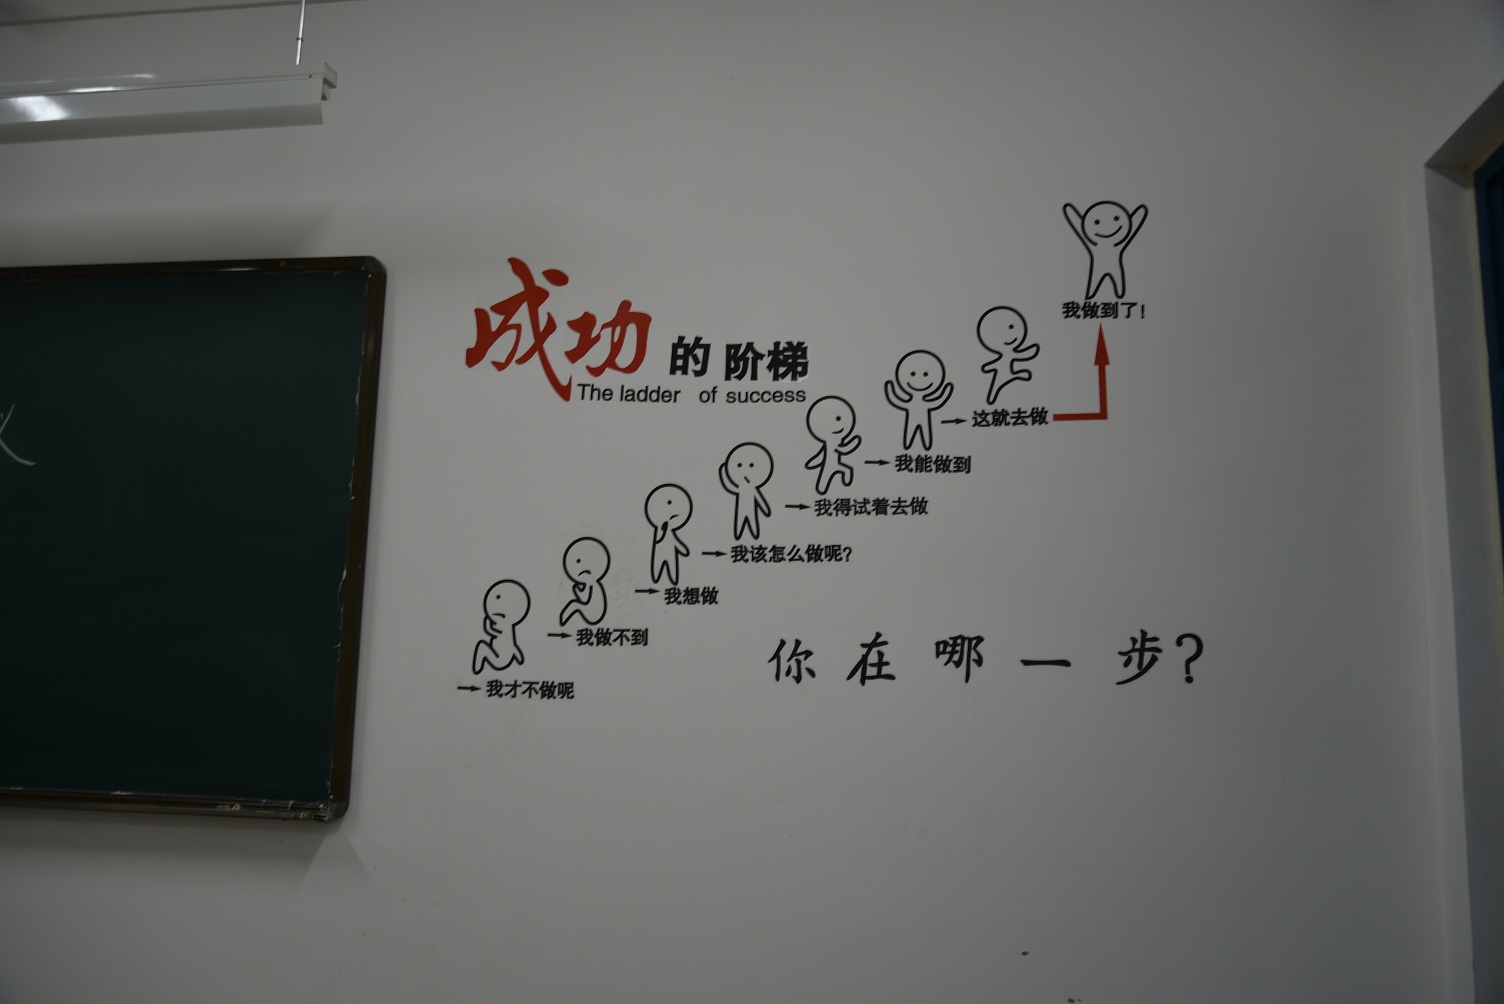 成功的阶梯
The ladder of success
我做到了!
这就去做
我能做到
我得试着去做
我该怎么做呢?
我想做
我做不到
我才不做呢
你在哪一步?